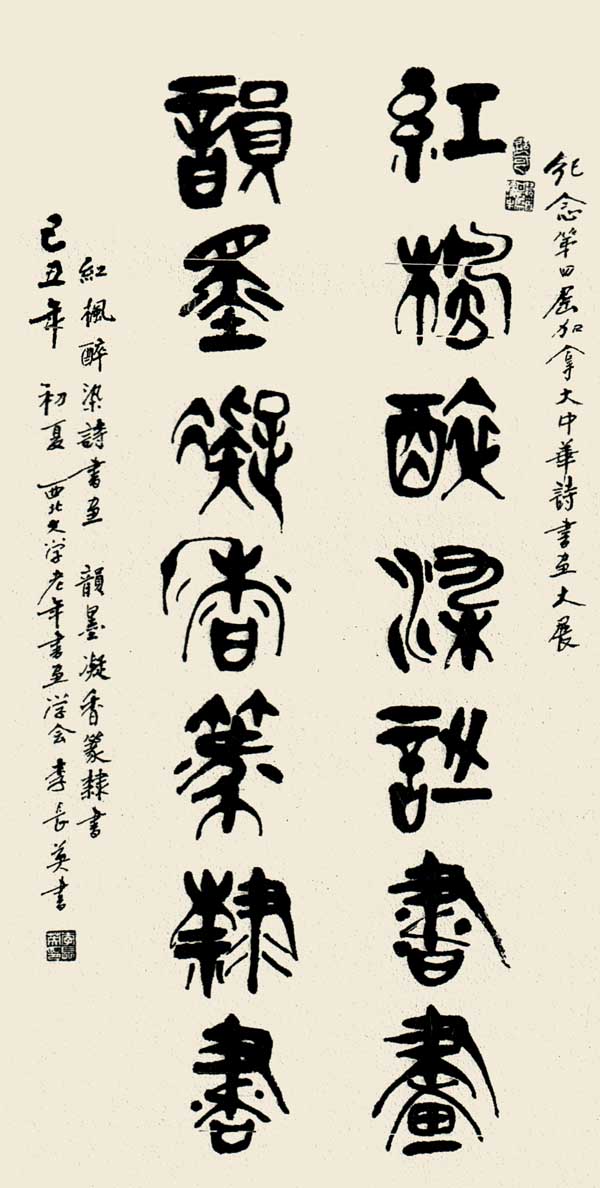 紀念第四届加拿大中華詩書画大展
紅楓醉染詩書畫
韻墨凝香篆隸書
紅楓醉染詩書画 韻墨凝香篆隸書
己丑年 初夏 西北大学老年書画学会 李長英書